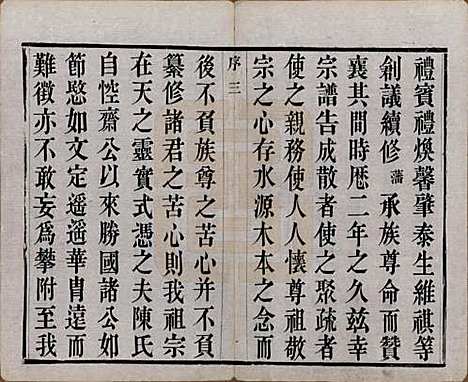 禮賓禮煥馨肇泰生維祺等
創議續修藩承族尊命而贊
襄其間時歷二年之久茲幸
宗譜告成散者使之聚疏者
使之親務使人人懷尊祖敬
宗之心存水源木本之念而
序 三
後不負族尊之苦心并不負
纂修諸君之苦心則我祖宗
在天之靈實式憑之夫陳氏
自悾齋公以來勝國諸公如
節愍如文定遥遥華胄遠而
難徵亦不敢妄爲攀附至我